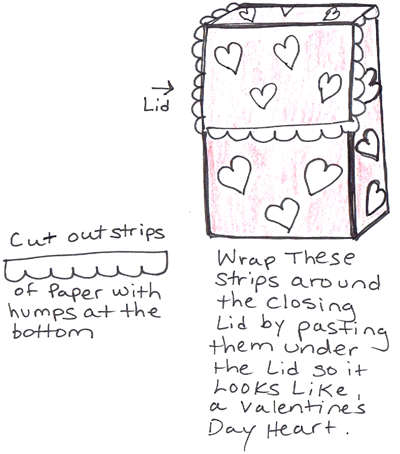 →
Lid
Cut out strips
of Paper with
humps at the
bottom
Wrap These
strips around
the closing
Lid by pasting
them under
the Lid so it
Looks Like,
a Valentine's
Day Heart.